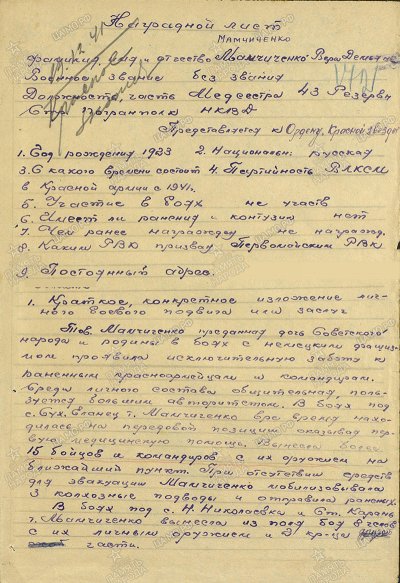 Наградной лист
Мамчиченко
Фамилия, имя и отчество Мамчиченко Вера
Военное звание без звания
Должность, часть Медсестра 43 Резервн
Стр. погранполка НКВД
Представляется к Ордену "Красной Звезды"
1. Год рождения 1923 2. Национальн. русская
3. С какого времени состоит 4. Партийность ВЛКСМ
в Красной армии с 1941 г.
5. Участие в боях не участв
6. Имеет ли ранения и контузии нет
7. Чем ранее награжден не награжд.
8. Каким РВК призван Первомайским РВК
9. Постоянный адрес.
1. Краткое, конкретное изложение лич-
ного боевого подвига или заслуг
Тов. Мамчиченко преданная дочь Советского
народа и родины в боях с немецким фашиз-
мом проявила исключительную заботу к
раненным красноармейцам и командирам.
Среди личного состава общительная, поль-
зуется большим авторитетом. В боях под
с. Сух. Еланец т. Мамчиченко все время нахо-
дилась на передовой позиции оказывая пер-
вую медицинскую помощь. Вынесла более
15 бойцов и командиров с их оружием на
ближайший пункт. При отсутствии средств
для эвакуации Мамчиченко мобилизовывала
3 колхозные подводы и отправила раненых.
В боях под с. Н. Николаевка и Ст. Карань
т. Мамчиченко вынесла из поля боя 8 челов
с их личным оружием и 2 кр-ца
части.